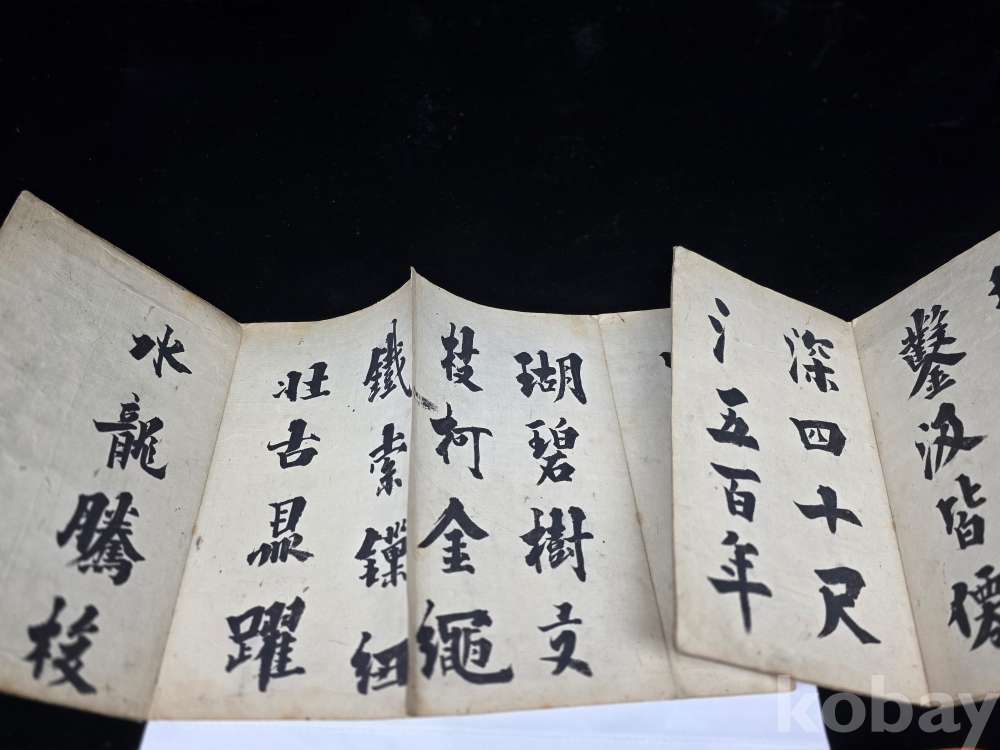 鑿汲皆僊
深四十尺
五百年
瑚碧樹交
枝柯金繩
鐵索鏁紐
壯古鼎躍
水龍騰梭
kobay